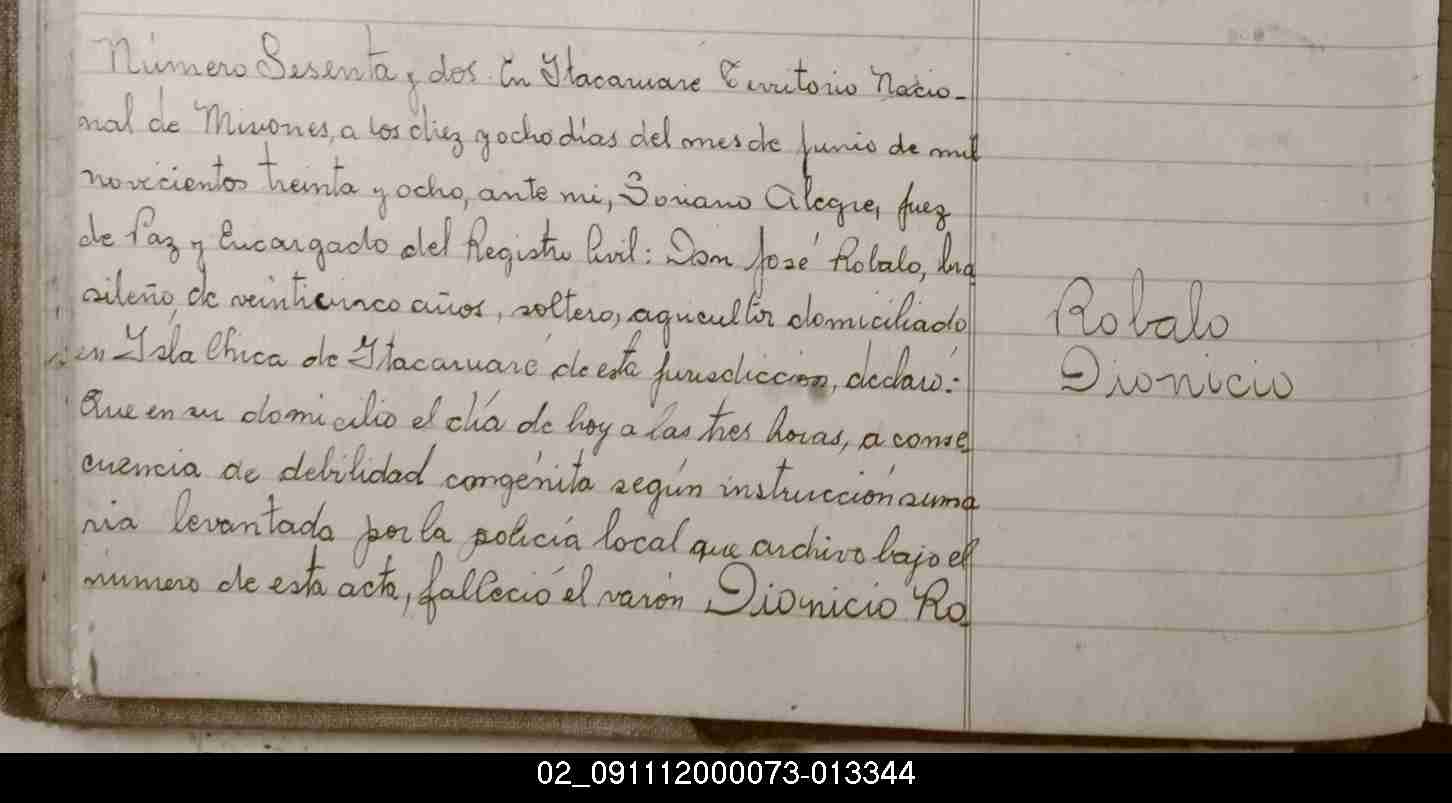 Número Sesenta y dos. En Itacaruaré Territorio Nacio-
nal de Misiones, a los diez y ocho días del mes de Junio de mil
novecientos treinta y ocho, ante mi, Soriano Alegre, Juez
de Paz y Encargado del Registro Civil: Don José Robalo, bra
sileño, de veinticinco años, soltero, agricultor domiciliado
en Isla Chica de Itacaruaré de esta jurisdicción, declaró:
Que en su domicilio el día de hoy a las tres horas, a conse
cuencia de debilidad congénita según instrucción suma
ria levantada por la policía local que archivo bajo el
número de esta acta, falleció el varón Dionicio Ro
Robalo
Dionicio
02_091112000073-013344